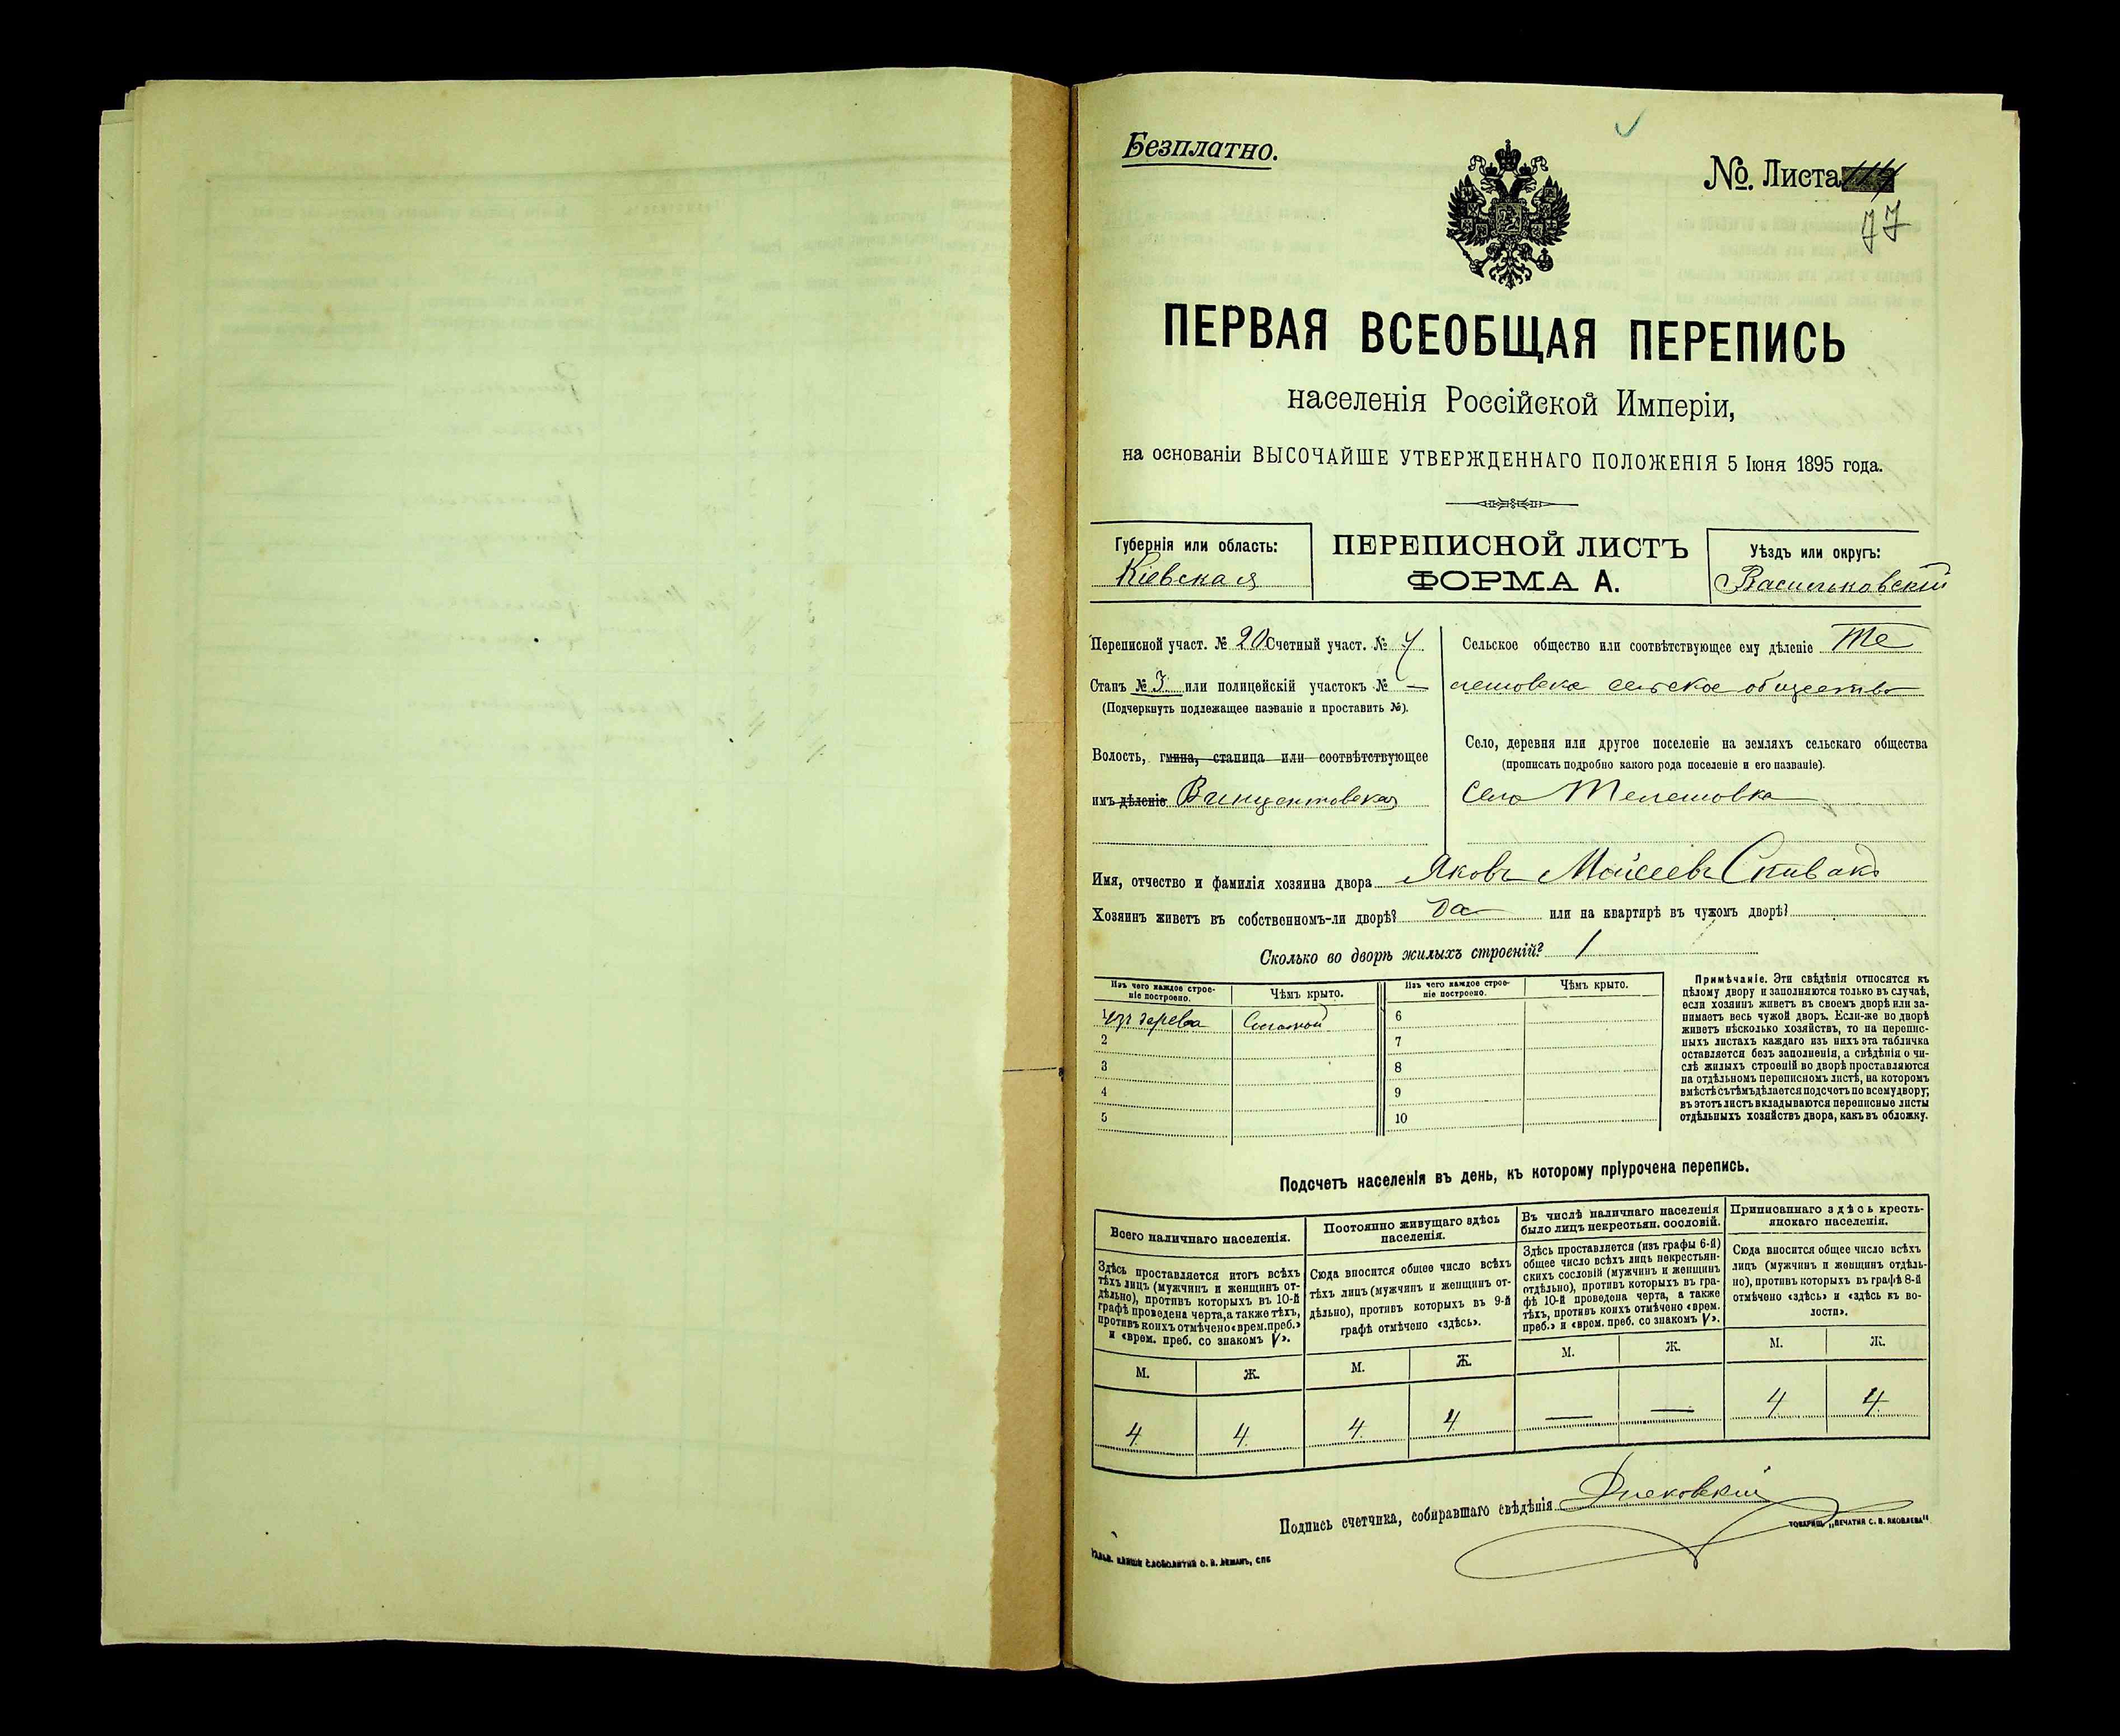 Безплатно.
№. Листа
77
ПЕРВАЯ ВСЕОБЩАЯ ПЕРЕПИСЬ
населенія Россійской Имперіи,
на основаніи ВЫСОЧАЙШЕ УТВЕРЖДЕННАГО ПОЛОЖЕНІЯ 5 Іюня 1895 года.
Губернія или область:
Кіевская
ПЕРЕПИСНОЙ ЛИСТЪ
ФОРМА А.
Уѣздъ или округъ:
Васильковскій
Переписной участ. № 20 Счетный участ. № 4
Станъ № 3 или полицейскій участокъ № —
(Подчеркнуть подлежащее названіе и проставить №).
Волость, гмина, станица или соотвѣтствующее
имъ дѣленіе Винцентовская
Сельское общество или соотвѣтствующее ему дѣленіе Те
лешовское сельское общество
Село, деревня или другое поселеніе на земляхъ сельскаго общества
(прописать подробно какого рода поселеніе и его названіе).
Село Телешовка
Имя, отчество и фамилія хозяина двора Яковъ Моисеевъ Спивакъ
Хозяинъ живетъ въ собственномъ-ли дворѣ? да или на квартирѣ въ чужомъ дворѣ?
Сколько во дворѣ жилыхъ строеній? 1
Изъ чего каждое строе-
ніе построено.
Чѣмъ крыто.
Изъ чего каждое строе-
ніе построено.
Чѣмъ крыто.
1 изъ дерева Соломой 6
2 7
3 8
4 9
5 10
Примѣчаніе. Эти свѣдѣнія относятся къ
цѣлому двору и заполняются только въ случаѣ,
если хозяинъ живетъ въ своемъ дворѣ или за-
нимаетъ весь чужой дворъ. Если-же во дворѣ
живетъ нѣсколько хозяйствъ, то на перепис-
ныхъ листахъ каждаго изъ нихъ эта табличка
оставляется безъ заполненія, а свѣдѣнія о чи-
слѣ жилыхъ строеній во дворѣ проставляются
на отдѣльномъ переписномъ листѣ, на которомъ
вмѣстѣ съ тѣмъ дѣлается подсчетъ по всему двору;
въ этотъ листъ вкладываются переписные листы
отдѣльныхъ хозяйствъ двора, какъ въ обложку.
Подсчетъ населенія въ день, къ которому пріурочена перепись.
Всего наличнаго населенія.
Здѣсь проставляется итогъ всѣхъ
тѣхъ лицъ (мужчинъ и женщинъ от-
дѣльно), противъ которыхъ въ 10-й
графѣ проведена черта, а также тѣхъ,
противъ коихъ отмѣчено «врем. преб.»
и «врем. преб. со знакомъ V».
М. Ж.
4 4
Постоянно живущаго здѣсь
населенія.
Сюда вносится общее число всѣхъ
тѣхъ лицъ (мужчинъ и женщинъ от-
дѣльно), противъ которыхъ въ 9-й
графѣ отмѣчено «здѣсь».
М. Ж.
4 4
Въ числѣ наличнаго населенія
было лицъ некрестьян. сословій.
Здѣсь проставляется (изъ графы 6-й)
общее число всѣхъ лицъ некрестьян-
скихъ сословій (мужчинъ и женщинъ
отдѣльно), противъ которыхъ въ гра-
фѣ 10-й проведена черта, а также
тѣхъ, противъ коихъ отмѣчено «врем.
преб.» и «врем. преб. со знакомъ V».
М. Ж.
— —
Приписаннаго здѣсь кресть-
янскаго населенія.
Сюда вносится общее число всѣхъ
лицъ (мужчинъ и женщинъ отдѣль-
но), противъ которыхъ въ графѣ 8-й
отмѣчено «здѣсь» и «здѣсь къ во-
лости».
М. Ж.
4 4
Подпись счетчика, собиравшаго свѣдѣнія
ТОВАРИЩ. „ПЕЧАТНЯ С. П. ЯКОВЛЕВА"